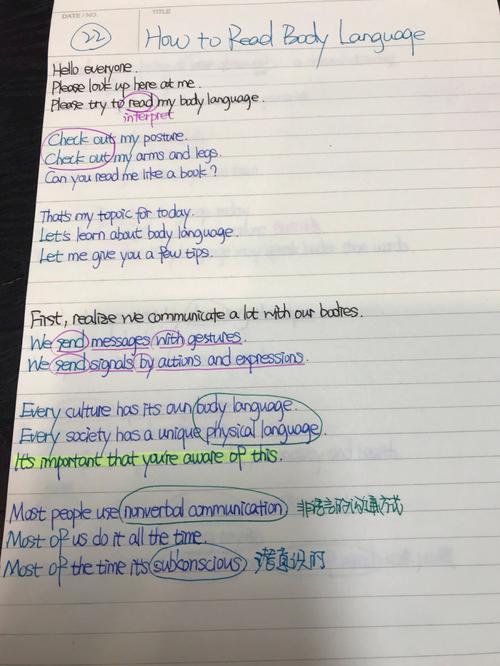 DATE / NO.
TITLE
22
How to Read Body Language
Hello everyone.
Please look up here at me.
Please try to read my body language.
interpret
Check out my posture.
Check out my arms and legs.
Can you read me like a book?
That's my topic for today.
Let's learn about body language.
Let me give you a few tips.
First, realize we communicate a lot with our bodies.
We send messages with gestures.
We send signals by actions and expressions.
Every culture has its own body language.
Every society has a unique physical language.
It's important that you're aware of this.
Most people use nonverbal communication 非语言的沟通方式
Most of us do it all the time.
Most of the time it's subconscious 潜意识的